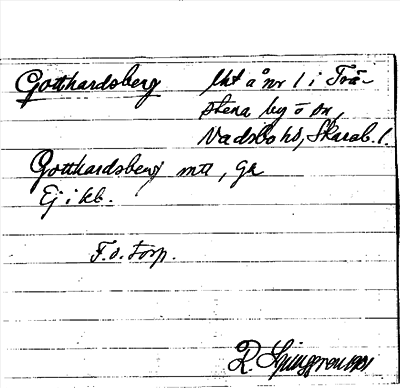 Gotthardsberg lht å nr 1 i Trä-
stena by o sn,
Vadsbo hd, Skarab. l.
Gotthardsberg mtl, Gk
Ej i kb.
F.d. torp.
R. Ljunggren